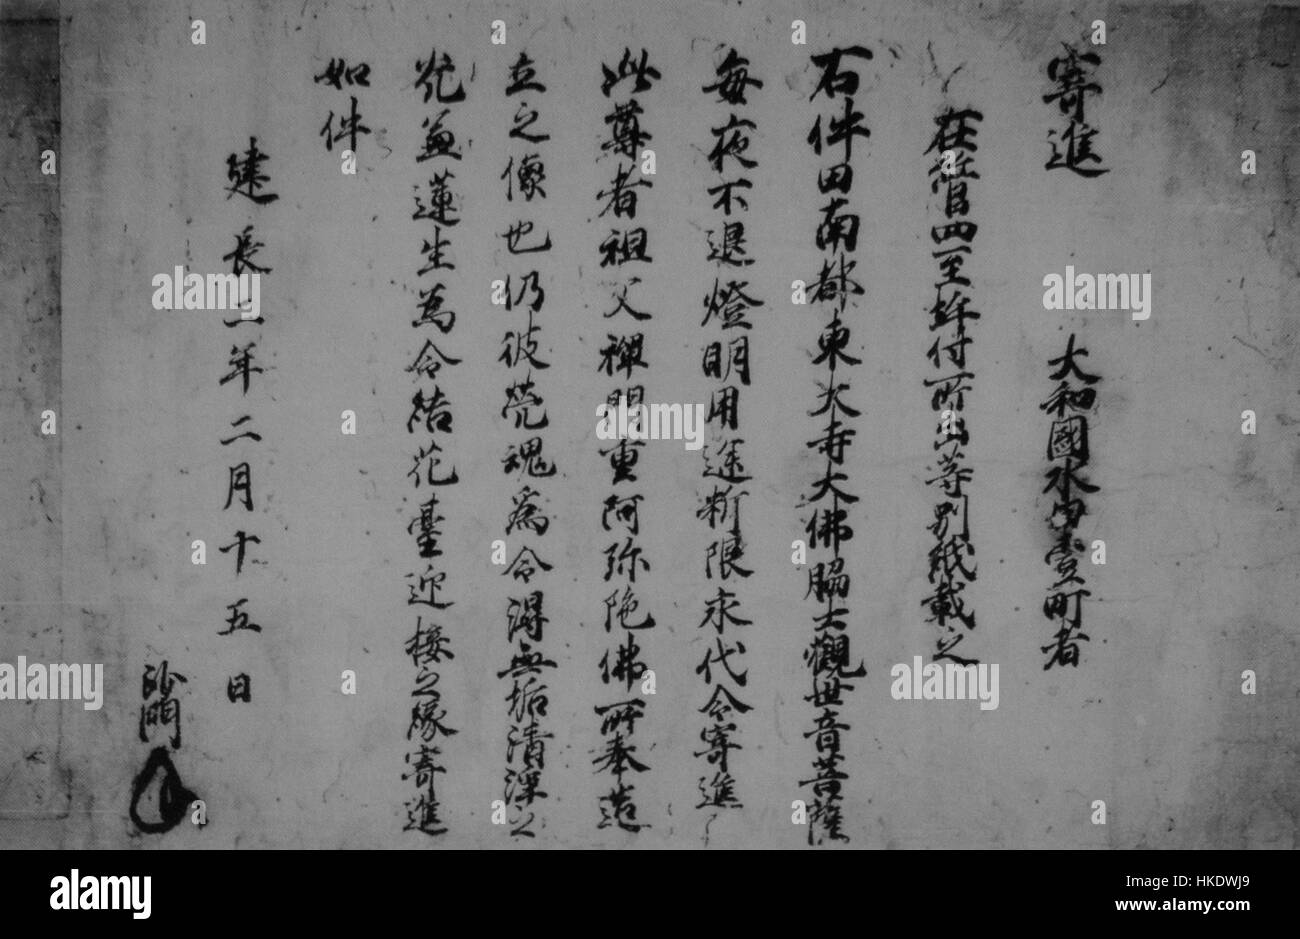 寄進　大和國水田壹町者
在管四至坪付所出等別紙載之
右件田南都東大寺大佛脇士觀世音菩薩
毎夜不退燈明用途料限永代令寄進
此尊者祖父禪門重阿弥陀佛所奉造
立之像也仍彼幽魂為令得無垢清淨之
光並蓮生為令結花臺迎接之縁寄進
如件
建長二年二月十五日
沙門
a alamy stock photo
HKDWJ9
www.alamy.com